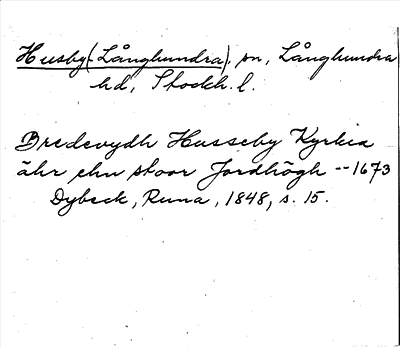 Husby (-Långhundra), sn, Långhundra
hd, Stockh. l.
Bredevydh Husseby Kyrkia
ähr ehn stoor Jordhögh -- 1673
Dybeck, Runa, 1848, s. 15.